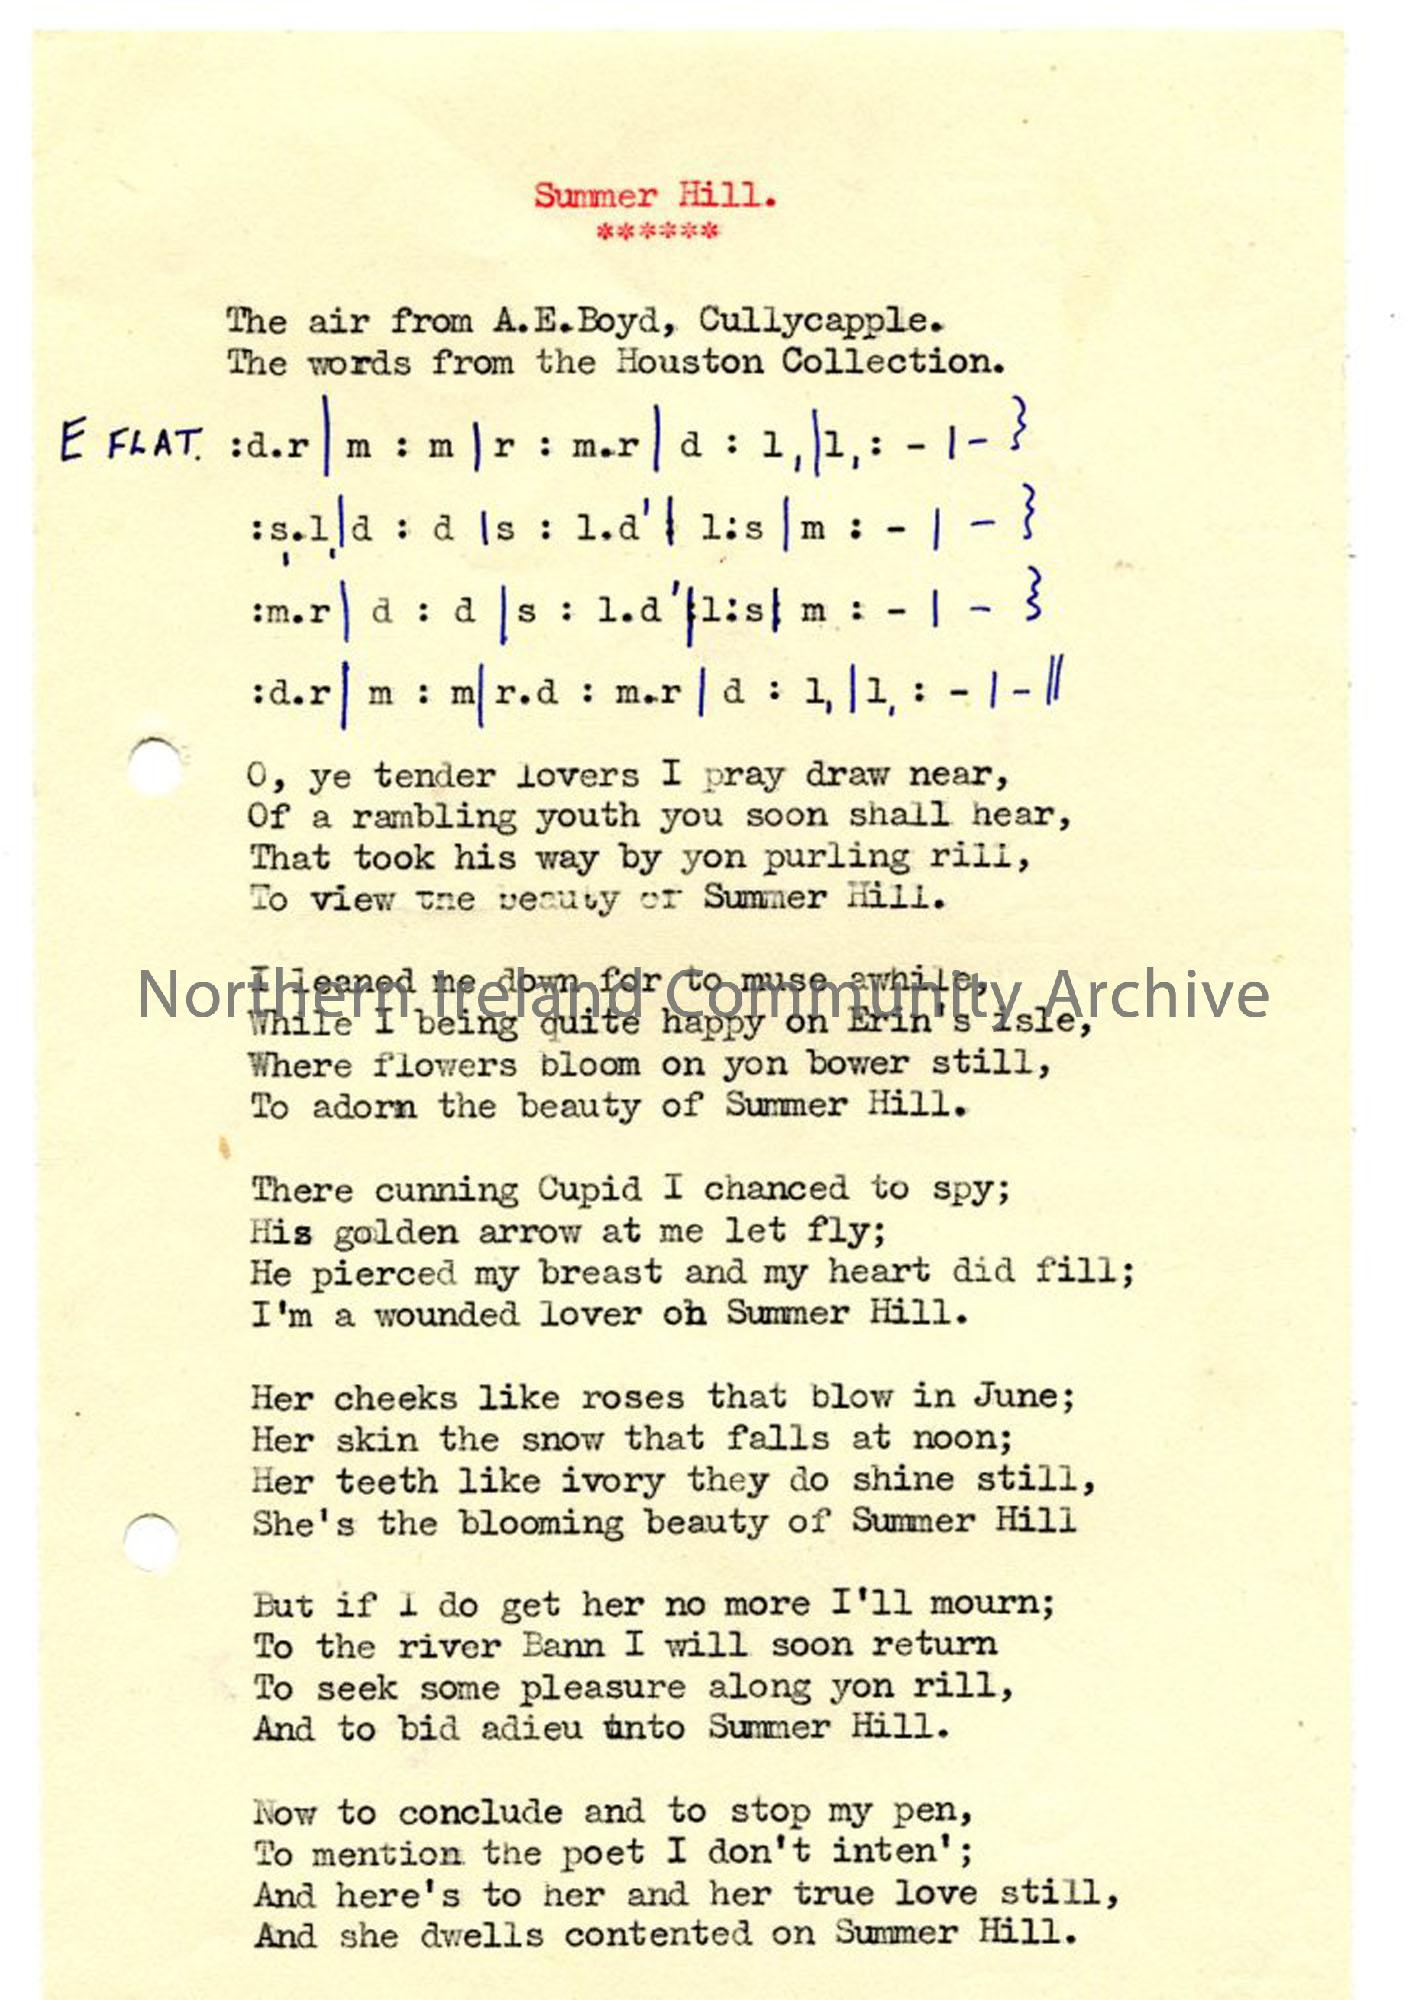 Summer Hill.
******
The air from A.E.Boyd, Cullycapple.
The words from the Houston Collection.
E FLAT. :d.r | m : m | r : m.r | d : l, | l, : - | - }
:s,.l, | d : d | s : l.d' | l:s | m : - | - }
:m.r | d : d | s : l.d' | l:s | m : - | - }
:d.r | m : m | r.d : m.r | d : l, | l, : - | - ||
O, ye tender lovers I pray draw near,
Of a rambling youth you soon shall hear,
That took his way by yon purling rill,
To view the beauty of Summer Hill.
I leaned me down for to muse awhile,
Northern Ireland Community Archive
While I being quite happy on Erin's Isle,
Where flowers bloom on yon bower still,
To adorn the beauty of Summer Hill.
There cunning Cupid I chanced to spy;
His golden arrow at me let fly;
He pierced my breast and my heart did fill;
I'm a wounded lover on Summer Hill.
Her cheeks like roses that blow in June;
Her skin the snow that falls at noon;
Her teeth like ivory they do shine still,
She's the blooming beauty of Summer Hill
But if I do get her no more I'll mourn;
To the river Bann I will soon return
To seek some pleasure along yon rill,
And to bid adieu unto Summer Hill.
Now to conclude and to stop my pen,
To mention the poet I don't inten';
And here's to her and her true love still,
And she dwells contented on Summer Hill.